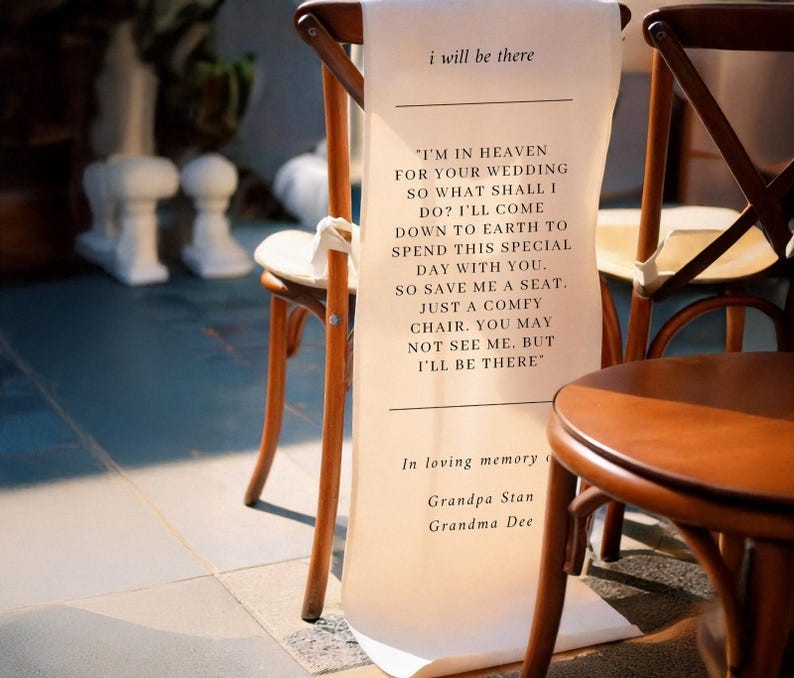 i will be there
"I'M IN HEAVEN
FOR YOUR WEDDING
SO WHAT SHALL I
DO? I'LL COME
DOWN TO EARTH TO
SPEND THIS SPECIAL
DAY WITH YOU.
SO SAVE ME A SEAT.
JUST A COMFY
CHAIR. YOU MAY
NOT SEE ME, BUT
I'LL BE THERE"
In loving memory
Grandpa Stan
Grandma Dee